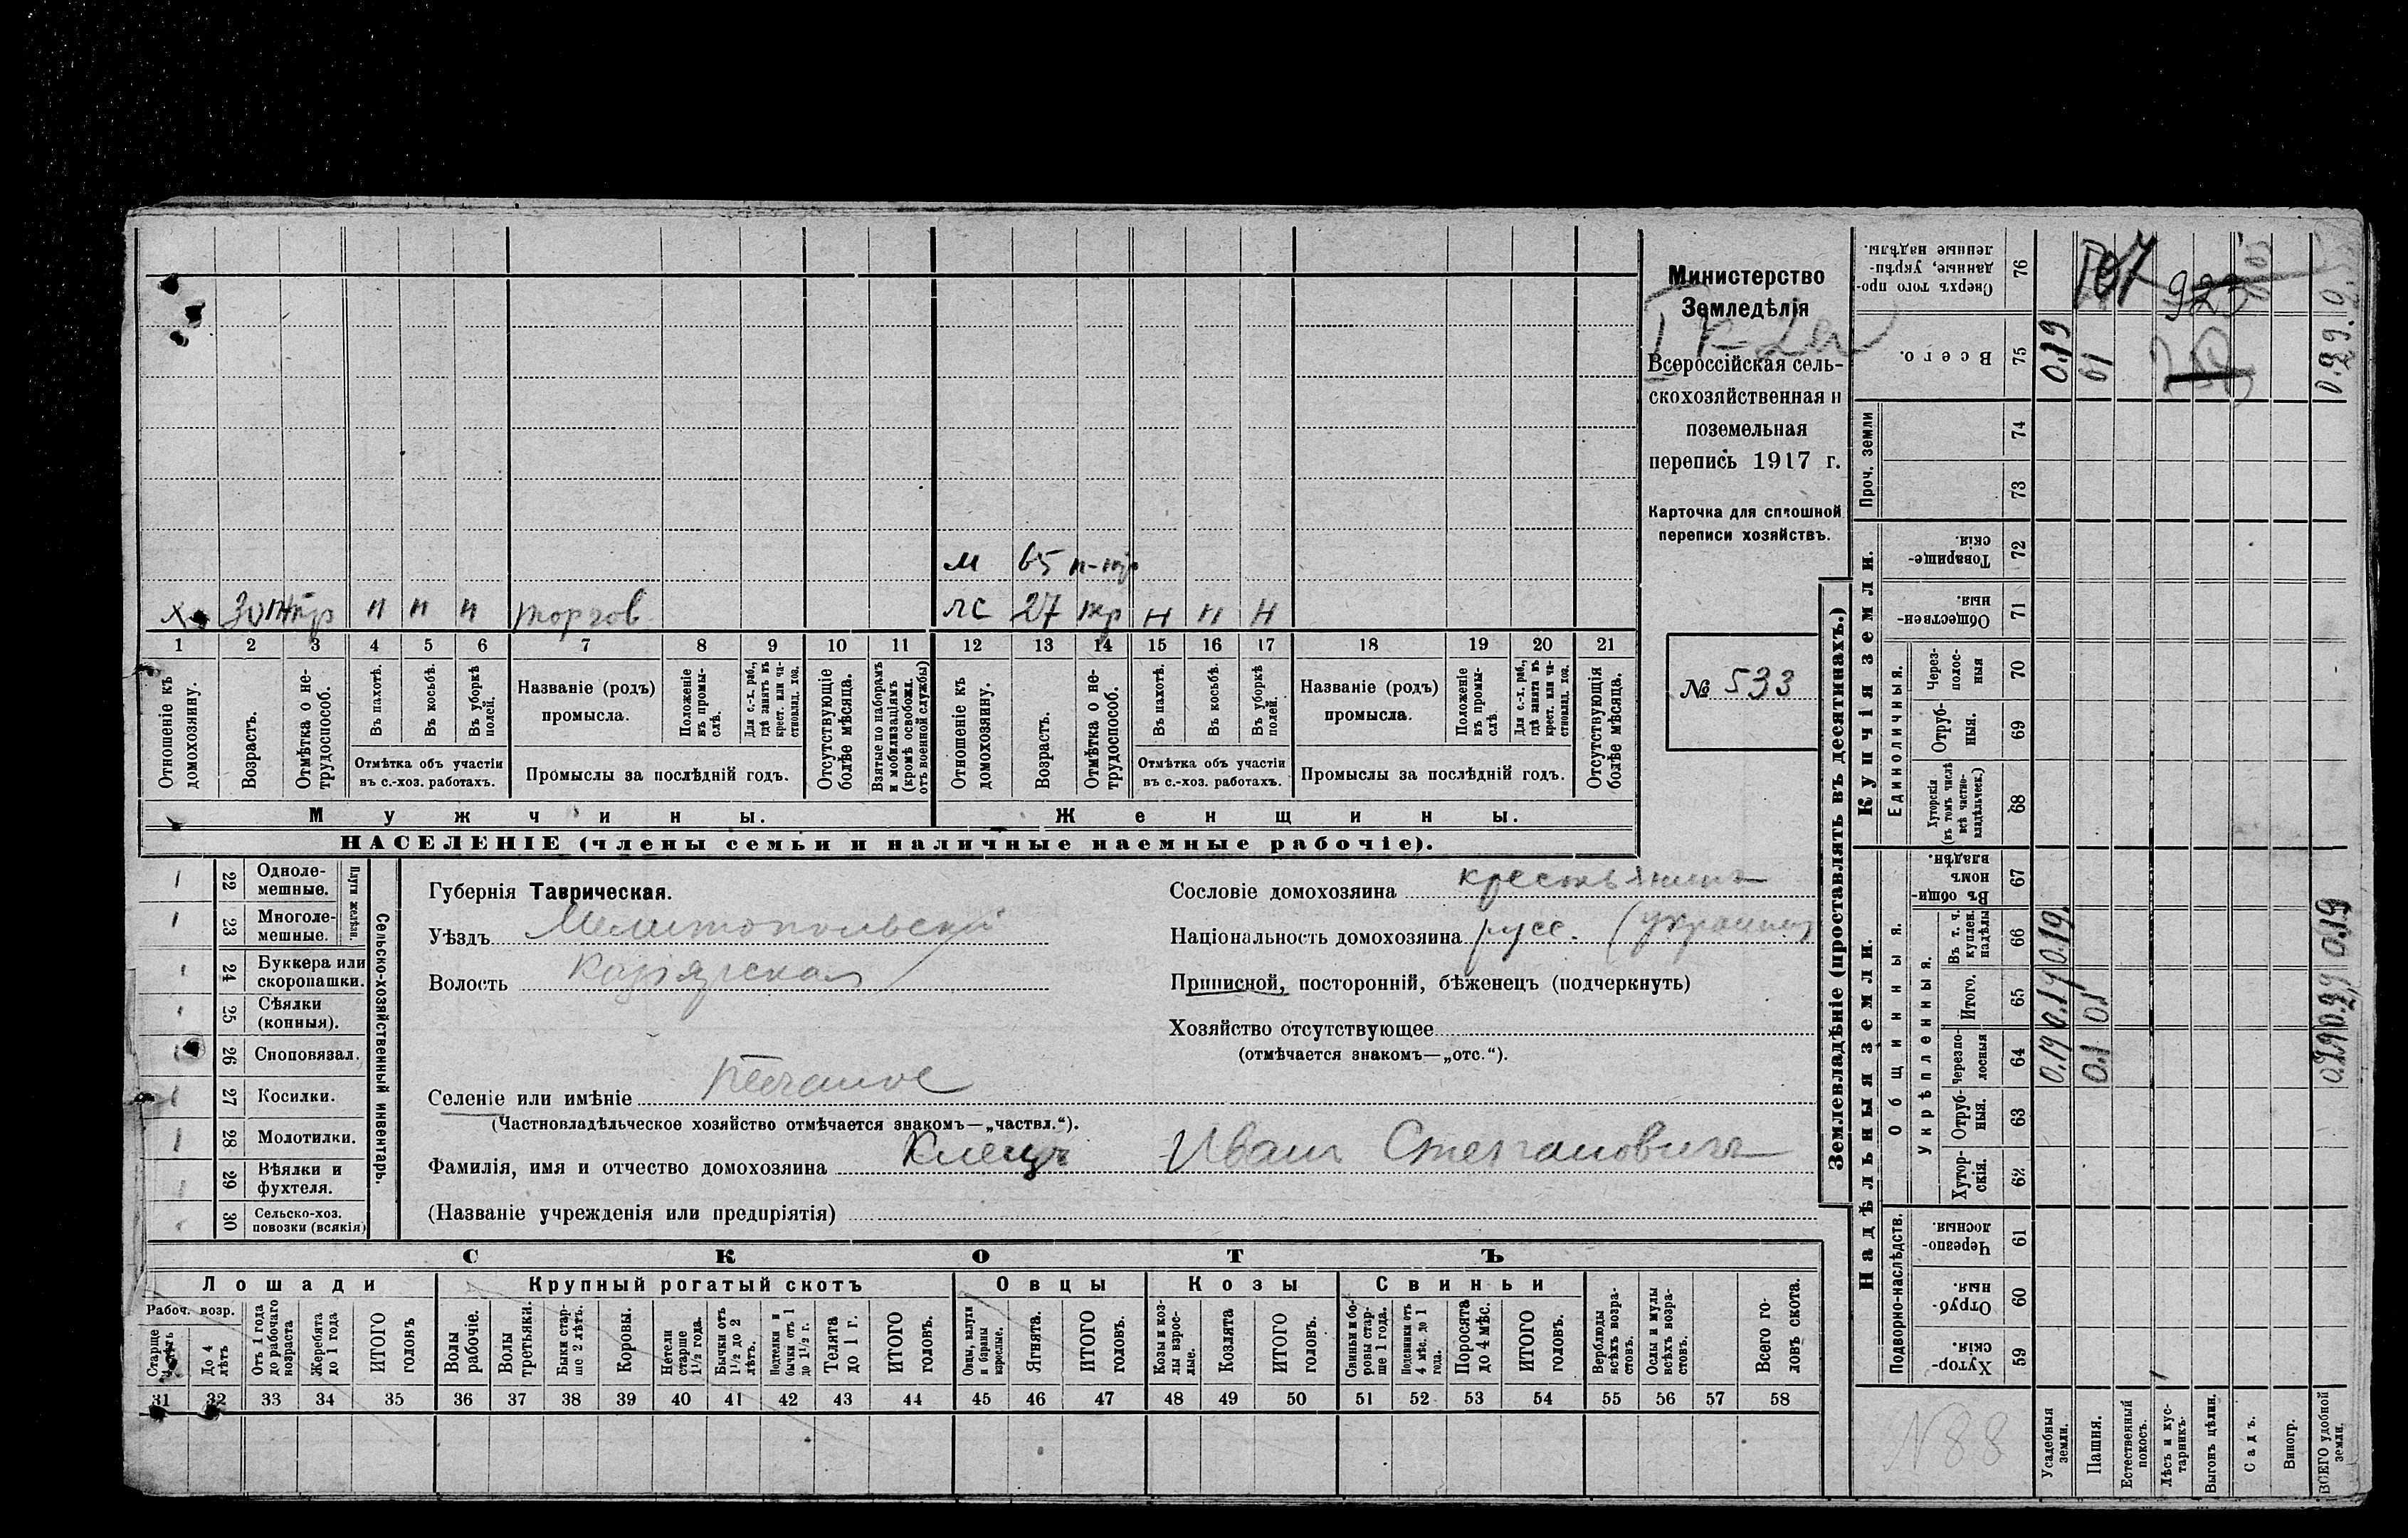 м 65
х 30 н н н торгов жс 27 н н н
1 2 3 4 5 6 7 8 9 10 11 12 13 14 15 16 17 18 19 20 21
Отношеніе къ домохозяину.
Возрастъ.
Отмѣтка о не-трудоспособ.
Въ пахотѣ.
Въ косьбѣ.
Въ уборкѣ полей.
Отмѣтка объ участіи
въ с.-хоз. работахъ.
Названіе (родъ)
промысла.
Положеніе въ промы-слѣ.
Для с.-х. раб., гдѣ занятъ въ крест. или ча-стновлад. хоз.
Промыслы за послѣдній годъ.
Отсутствующіе болѣе мѣсяца.
Взятые по наборамъ и мобилизаціямъ (кромѣ освобожд. отъ военной службы)
Отношеніе къ домохозяину.
Возрастъ.
Отмѣтка о не-трудоспособ.
Въ пахотѣ.
Въ косьбѣ.
Въ уборкѣ полей.
Отмѣтка объ участіи
въ с.-хоз. работахъ.
Названіе (родъ)
промысла.
Положеніе въ промы-слѣ.
Для с.-х. раб., гдѣ занята въ крест. или ча-стновлад. хоз.
Промыслы за послѣдній годъ.
Отсутствующія болѣе мѣсяца.
Мужчины. Женщины.
НАСЕЛЕНІЕ (члены семьи и наличные наемные рабочіе).
Министерство
Земледѣлія
Всероссійская сель-
скохозяйственная и
поземельная
перепись 1917 г.
Карточка для сплошной
переписи хозяйствъ.
№ 533
22 Одноле-мешные.
23 Многоле-мешные.
Плуги желѣзн.
24 Буккера или скоропашки.
25 Сѣялки (конныя).
26 Сноповязал.
27 Косилки.
28 Молотилки.
29 Вѣялки и фухтеля.
30 Сельско-хоз. повозки (всякія)
Сельско-хозяйственный инвентарь.
Губернія Таврическая.
Уѣздъ Мелитопольскій
Волость
Селеніе или имѣніе
(Частновладѣльческое хозяйство отмѣчается знакомъ—„частвл.“).
Фамилія, имя и отчество домохозяина Клещъ Иванъ Степановичъ
(Названіе учрежденія или предпріятія)
Сословіе домохозяина крестьянинъ
Національность домохозяина русс.
Приписной, посторонній, бѣженецъ (подчеркнуть)
Хозяйство отсутствующее
(отмѣчается знакомъ—„отс.“).
СКОТЪ
Лошади Крупный рогатый скотъ Овцы Козы Свиньи
Рабоч. возр.
Старше лѣтъ
До 4 лѣтъ
Отъ 1 года до рабочаго возраста
Жеребята до 1 года
ИТОГО головъ
Волы рабочіе.
Волы третьяки.
Быки стар-ше 2 лѣтъ.
Коровы.
Нетели старше 1½ года.
Бычки отъ 1½ до 2 лѣтъ.
Подтелки и бычки отъ 1 до 1½ г.
Телята до 1 г.
ИТОГО головъ.
Овцы, валухи и бараны взрослые.
Ягнята.
ИТОГО головъ.
Козы и коз-лы взрос-лые.
Козлята
ИТОГО головъ.
Свиньи и бо-ровы стар-ше 1 года.
Подсвинки отъ 4 мѣс. до 1 года.
Поросята до 4 мѣс.
ИТОГО головъ.
Верблюды всѣхъ возра-стовъ.
Ослы и мулы всѣхъ возра-стовъ.
Всего го-ловъ скота.
31 32 33 34 35 36 37 38 39 40 41 42 43 44 45 46 47 48 49 50 51 52 53 54 55 56 57 58
Землевладѣніе (проставлять въ десятинахъ.)
Надѣльныя земли. Купчія земли. Проч. земли
Подворно-наслѣдств.
Общинныя.
Укрѣпленныя.
Единоличныя.
Хутор-скія. 59
Отруб-ныя. 60
Черезпо-лосныя. 61
Хутор-скія. 62
Отруб-ныя. 63
Черезпо-лосныя 64
Итого. 65
Въ т. ч. куплен. надѣлы 66
Въ общин-номъ владѣн. 67
Хуторскія (въ томъ числѣ всѣ частно-владѣльческ.) 68
Отруб-ныя. 69
Через-полос-ныя 70
Обществен-ныя. 71
Товарище-скія. 72
73
74
Всего. 75
Сверхъ того про-данные, укрѣп-ленные надѣлы. 76
N88
Усадебныя земли. 0.19 0.19 0.19 0.19
Пашня. 0.1 0.1 01
Естественный покосъ.
Лѣсъ и кус-тарникъ.
Выгонъ цѣлин.
Садъ.
Виногр.
ВСЕГО удобной земли. 0.19
923